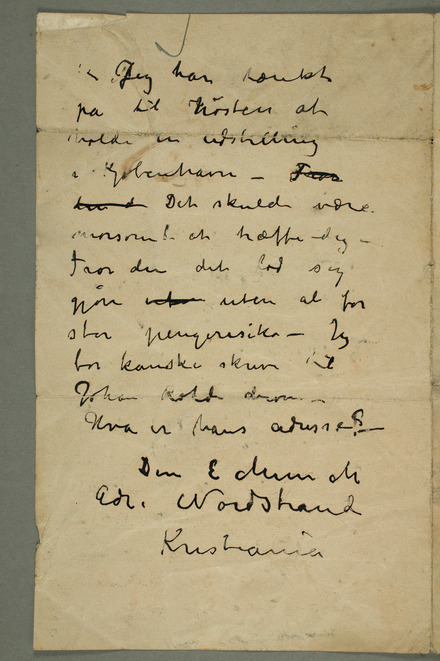 Jeg har tænkt
på til Høsten at
holde en udstilling
i Kjøbenhavn – Tror
du d Det skulde være
morsomt at træffe dig –
Tror du det lod sig
gjøre uten al for
stor pengerisiko – Jeg
bør kanske skrive til
Johan Rohde derom –
Hva er hans adresse? –
Din E Munch
Adr. Nordstrand
Kristiania